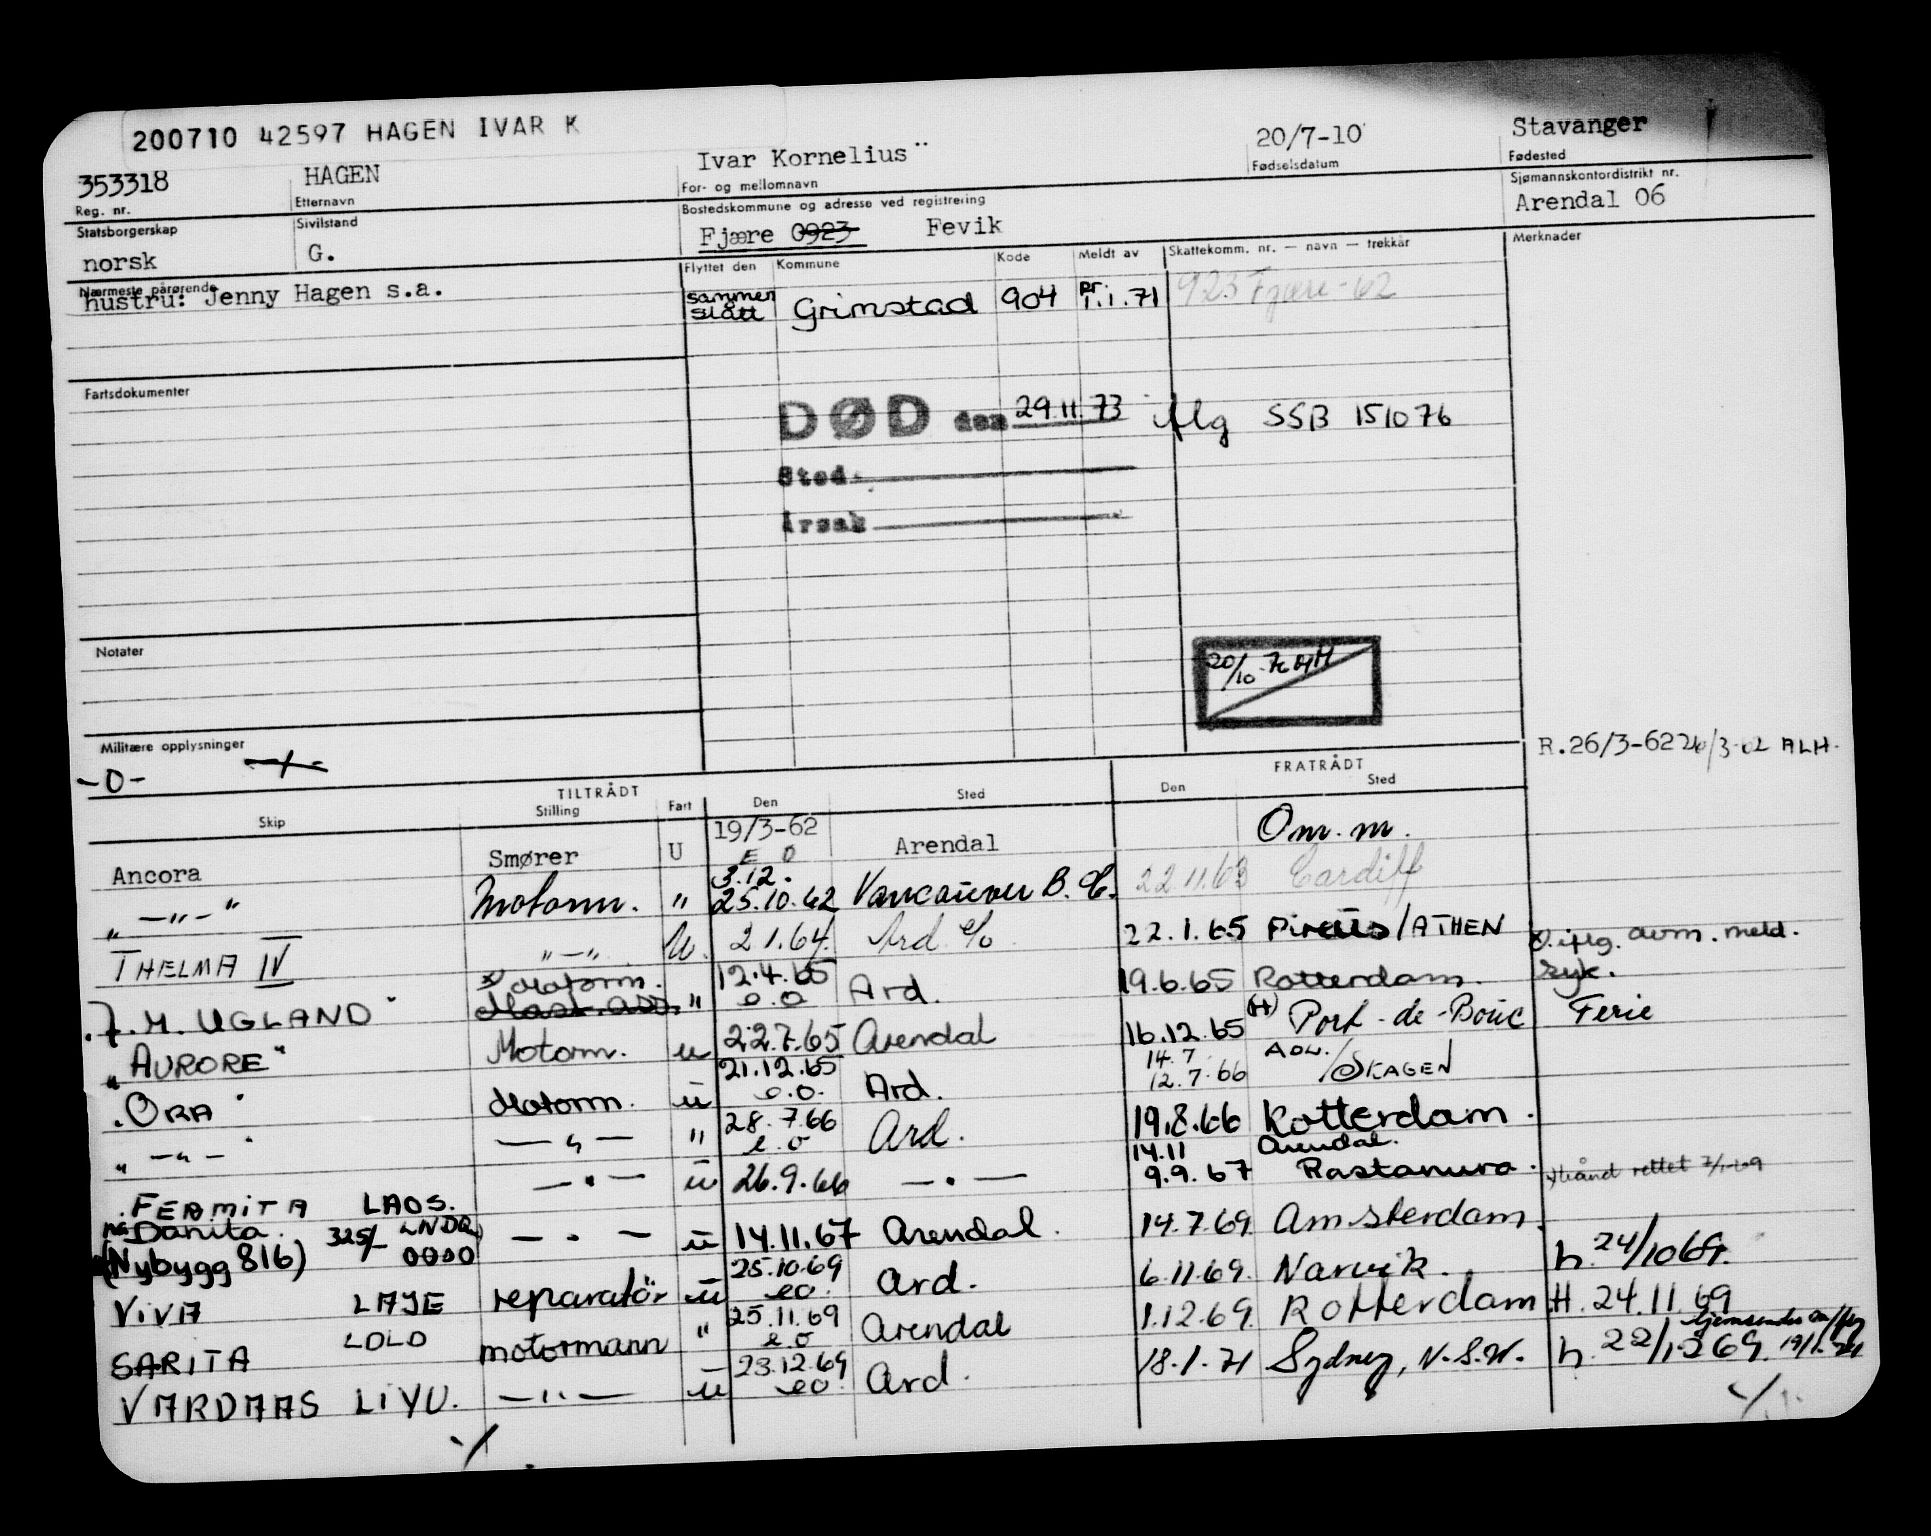 200710 42597 HAGEN IVAR K
353318 HAGEN Ivar Kornelius 20/7-10 Stavanger
Reg. nr. Etternavn For- og mellomnavn Fødselsdatum Fødested
Statsborgerskap Sivilstand Bostedskommune og adresse ved registrering Sjømannskontordistrikt nr.
norsk G. Fjære 0923 Fevik Arendal 06
Nærmeste pårørende Flyttet den Kommune Kode Meldt av Skattekomm. nr. — navn — trekkår Merknader
hustru: Jenny Hagen s.a. sammen slått Grimstad 904 pr. 1.1.71 923 Fjære-62
Fartsdokumenter
DØD den 29.11.73 iflg SSB 151076
Sted
Årsak
Notater
20/10-76 AH
Militære opplysninger
-0-
R.26/3-62 26/3-62 ALH.
TILTRÅDT FRATRÅDT
Skip Stilling Fart Den Sted Den Sted
Ancora Smører U 19/3-62 E O Arendal Om. m.
" —"— " Motorm. " 3.12. 25.10.62 Vancouver B.C. 22.11.63 Cardiff
THELMA IV —"— U. 2 1.64. Ard e/o 22.1.65 Pireus/ATHEN
x) iflg. avm. meld.
J.M. UGLAND" x) Motorm. Mask. ass. " 12.4.65 e.o Ard. 19.6.65 Rotterdam. syk.
"AURORE" Motorm. u 22.7.65 Arendal 16.12.65 (H) Port-de-Bouc Ferie
"ORA" Motorm. u 21.12.65 e.o. Ard. 14.7 12.7.66 ADW./SKAGEN
" —"— " — " — " 28.7.66 e.o Ard. 19.8.66 Rotterdam.
FERMITA LAOS. — " — u 26.9.66 — " — 14.11 9.9.67 Arendal. Rastanura.
Danita. 325/- LNDQ
(Nybygg 816) 0000 — " — u 14.11.67 Arendal. 14.7.69 Amsterdam.
ViVA LAJE reparatör u 25.10.69 eo. Ard. 6.11.69. Narvik. h. 24/1069.
SARITA LOLO motormann " 25.11.69 e.o Arendal 1.12.69. Rotterdam H. 24.11.69
VARDAAS LiYU. —"— u 23.12.69 eo. Ard. 18.1.71 Sydney, N.S.W. h. 22/1269.